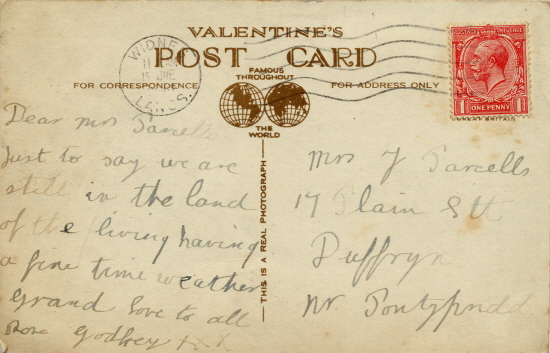 VALENTINE'S
POST CARD
FAMOUS
THROUGHOUT
THE
WORLD
FOR CORRESPONDENCE
FOR ADDRESS ONLY
THIS IS A REAL PHOTOGRAPH
WIDNES
JNE
LANCS.
POSTAGE REVENUE
1 ONE PENNY 1
Dear Mrs Parcells
Just to say we are
still in the land
of the living having
a fine time weather
grand love to all
Godfrey
Mrs J Parcells
17 Plain Stt
Duffryn
Nr Pontypridd